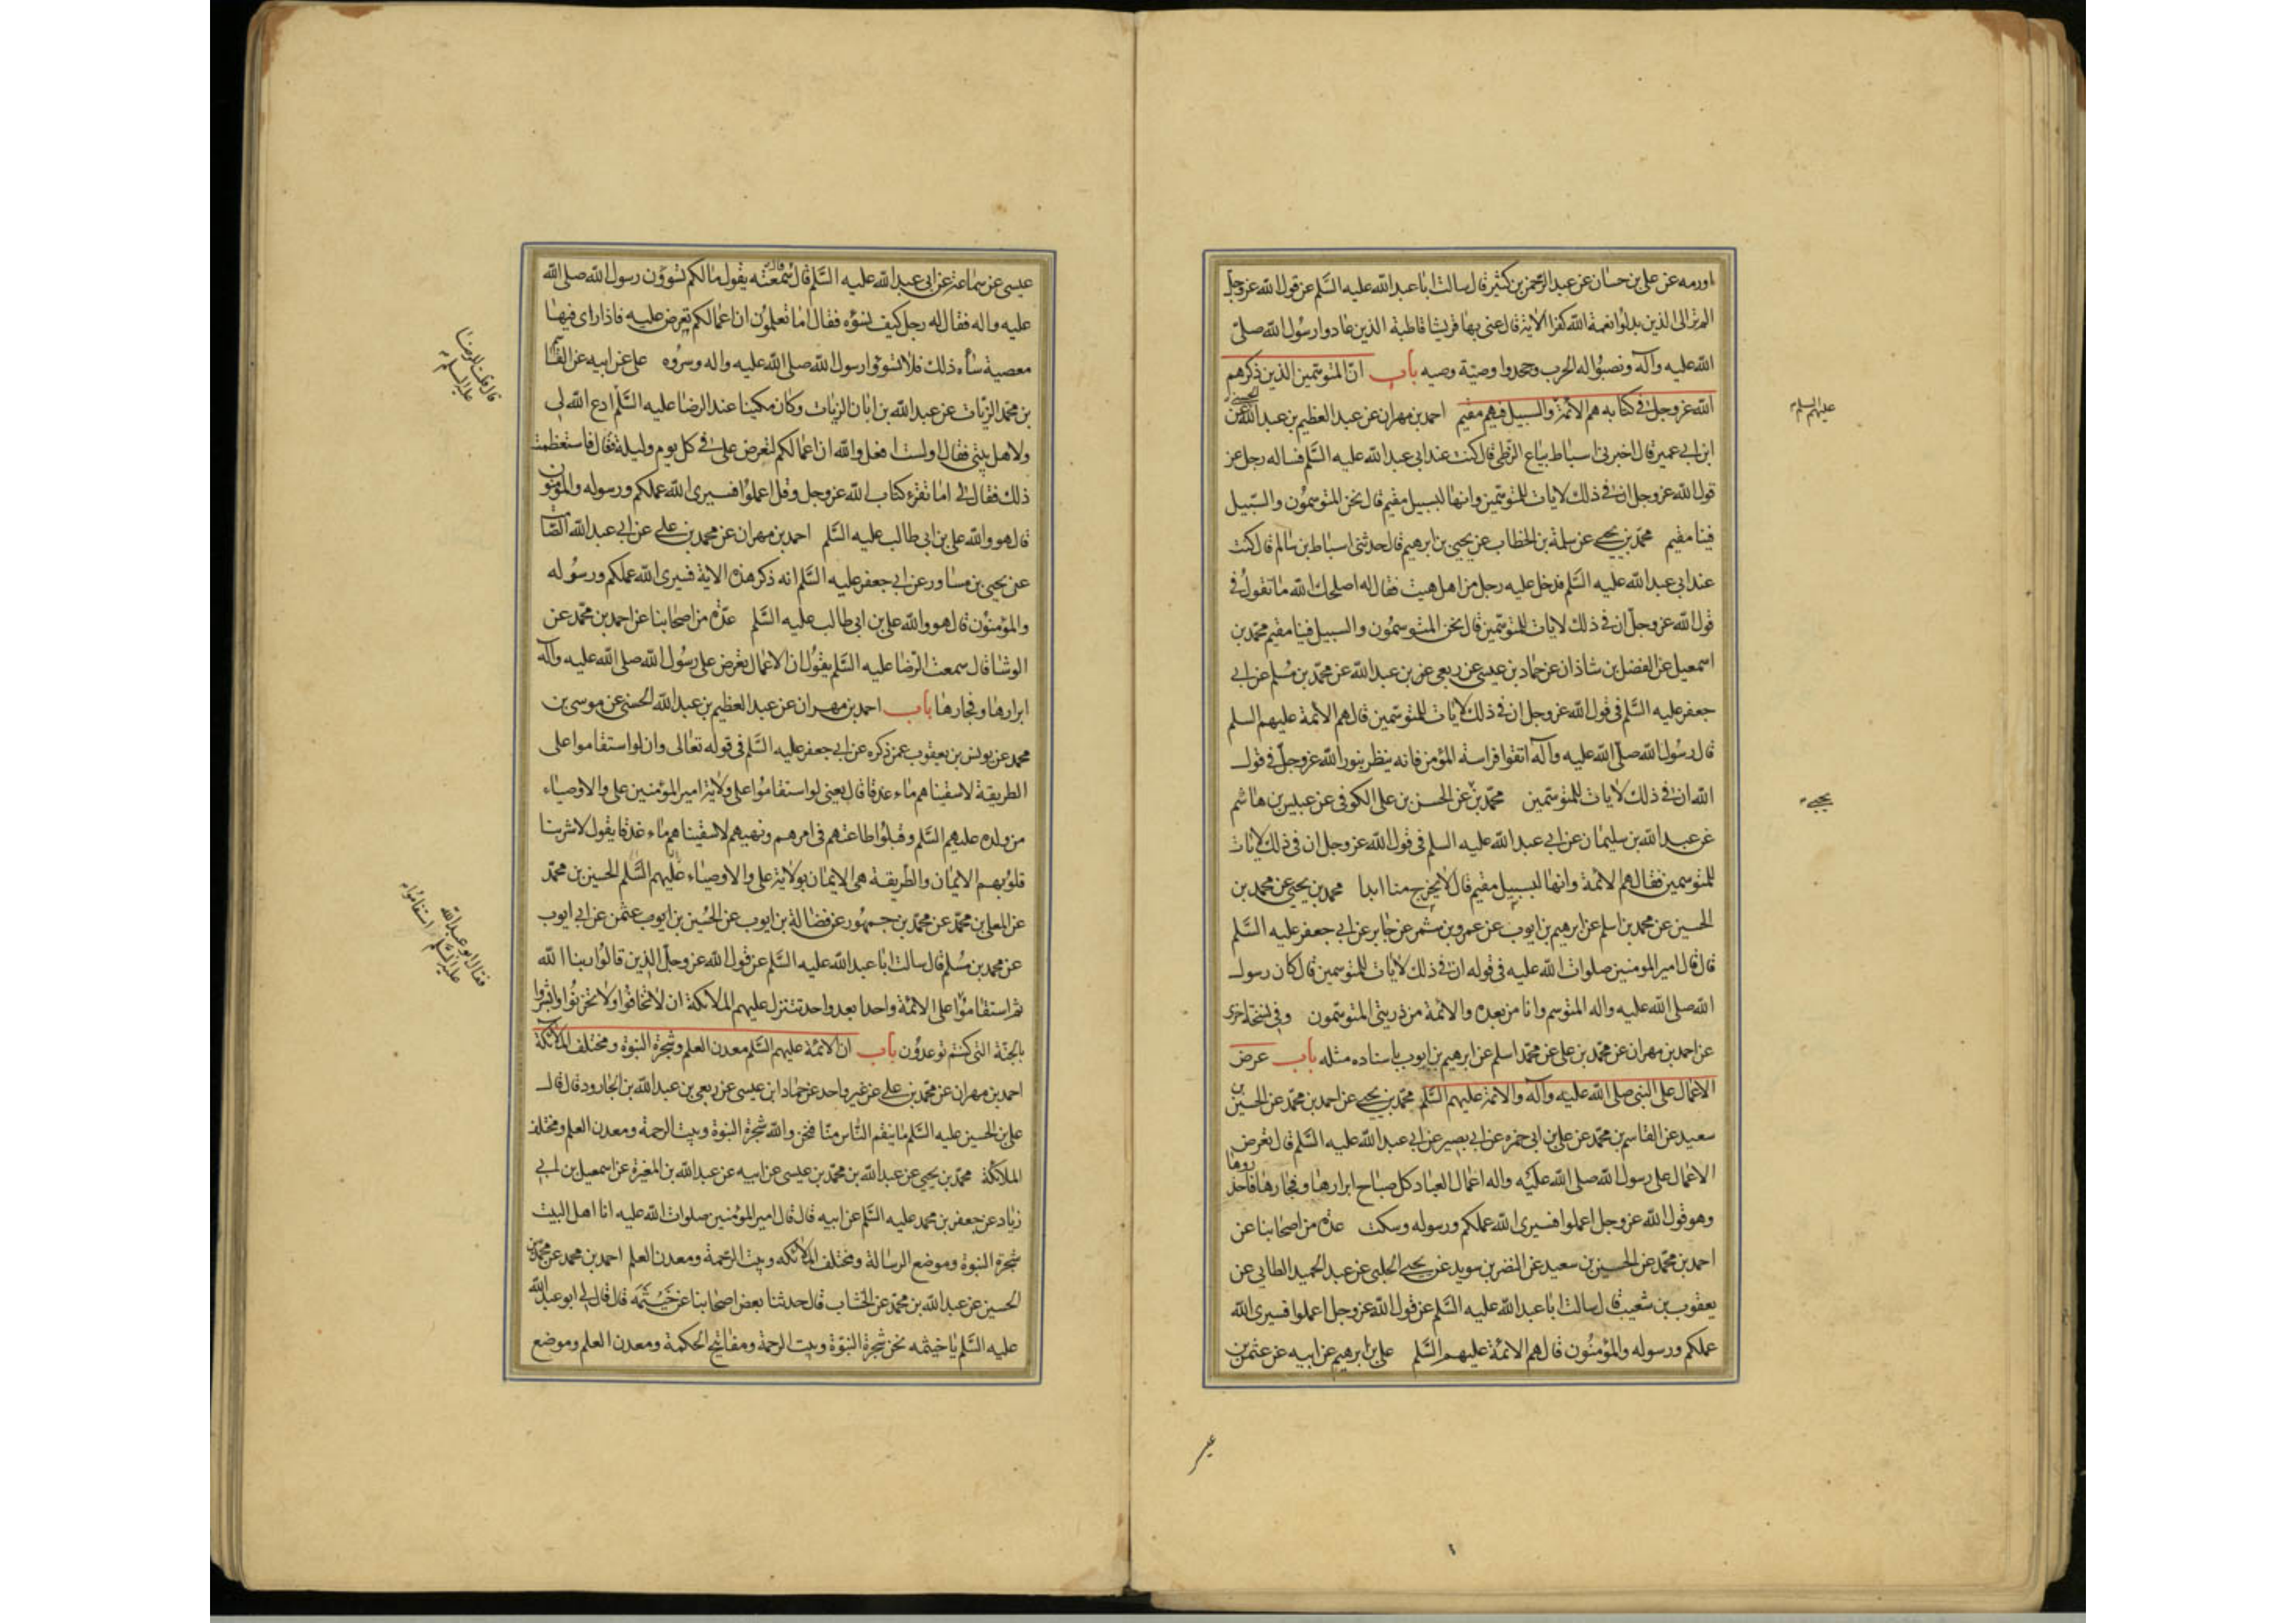 اورمه عن علي بن حسان عن عبد الرحمن بن كثير قال سالت ابا عبد الله عليه السلم عن قول الله عز وجل
الم تر الى الذين بدلوا نعمة الله كفرا الاية قال عنى بها قريشا قاطبة الذين عادوا رسول الله صلى
الله عليه وآله ونصبوا له الحرب وجحدوا وصية وصيه باب ان المتوسمين الذين ذكرهم
الله عز وجل في كتابه هم الائمة والسبيل فيهم مقيم احمد بن مهران عن عبد العظيم بن عبد الله الحسني عن
عليهم السلم
ابن ابي عمير قال اخبرني اسباط بياع الزطي قال كنت عند ابي عبد الله عليه السلم فساله رجل عن
قول الله عز وجل ان في ذلك لايات للمتوسمين وانها لبسبيل مقيم قال نحن المتوسمون والسبيل
فينا مقيم محمد بن يحيى عن سلمة بن الخطاب عن يحيى بن ابرهيم قال حدثنى اسباط بن سالم قال كنت
عند ابي عبد الله عليه السلم فدخل عليه رجل من اهل هيت فقال له اصلحك الله ما تقول في
قول الله عز وجل ان في ذلك لايات للمتوسمين قال نحن المتوسمون والسبيل فينا مقيم محمد بن
اسمعيل عن الفضل بن شاذان عن حماد بن عيسى عن ربعي عن بن عبد الله عن محمد بن مسلم عن ابي
جعفر عليه السلم في قول الله عز وجل ان في ذلك لايات للمتوسمين قال هم الائمة عليهم السلم
قال رسول الله صلى الله عليه وآله اتقوا فراسة المؤمن فانه ينظر بنور الله عز وجل في قول
الله ان في ذلك لايات للمتوسمين محمد بن عن الحسن بن علي الكوفي عن عبيس بن هاشم
يحيى
عن عبد الله بن سليمان عن ابي عبد الله عليه السلم في قول الله عز وجل ان في ذلك لايات
للمتوسمين فقال هم الائمة وانها لبسبيل مقيم قال لا يخرج منا ابدا محمد بن يحيى عن محمد بن
الحسين عن محمد بن اسلم عن ابرهيم بن ايوب عن عمرو بن شمر عن جابر عن ابي جعفر عليه السلم
قال قال امير المومنين صلوات الله عليه في قوله ان في ذلك لايات للمتوسمين قال كان رسول
الله صلى الله عليه واله المتوسم وانا من بعده والائمة من ذريتي المتوسمون وفي نسخة اخرى
عن احمد بن مهران عن محمد بن علي عن محمد اسلم عن ابرهيم بن ايوب باسناده مثله باب عرض
الاعمال على النبي صلى الله عليه وآله والائمة عليهم السلم محمد بن يحيى عن احمد بن محمد عن الحسين بن
سعيد عن القاسم بن محمد عن علي بن ابي حمزه عن ابي بصير عن ابي عبد الله عليه السلم قال تعرض
الاعمال على رسول الله صلى الله عليه واله اعمال العباد كل صباح ابرارها وفجارها فاحذروها
وهو قول الله عز وجل اعملوا فسيرى الله عملكم ورسوله وسكت عدة من اصحابنا عن
احمد بن محمد عن الحسين بن سعيد عن النضر بن سويد عن يحيى الحلبي عن عبد الحميد الطايي عن
يعقوب بن شعيب قال سالت ابا عبد الله عليه السلم عن قول الله عز وجل اعملوا فسيرى الله
عملكم ورسوله والمؤمنون قال هم الائمة عليهم السلم علي بن ابرهيم عن ابيه عن عثمن بن
عيسى
عيسى عن سماعة عن ابي عبد الله عليه السلم قال سمعته يقول مالكم تسوؤن رسول الله صلى الله
عليه واله فقال له رجل كيف نسوؤه فقال اما تعلمون ان اعمالكم تعرض عليه فاذا راى فيها
معصية ساءه ذلك فلا تسوؤا رسول الله صلى الله عليه واله وسروه علي عن ابيه عن القاسم
بن محمد الزيات عن عبد الله بن ابان الزيات وكان مكينا عند الرضا عليه السلم ادع الله لي
قال قلت للرضا
عليه السلم
ولاهل بيتي فقال اولست افعل والله ان اعمالكم لتعرض علي في كل يوم وليلة فقال فاستعظمت
ذلك فقال لي اما تقرء كتاب الله عز وجل وقل اعملوا فسيرى الله عملكم ورسوله والمؤمنون
قال هو والله علي بن ابي طالب عليه السلم احمد بن مهران عن محمد بن علي عن ابي عبد الله الصامت
عن يحيى بن مساور عن ابي جعفر عليه السلم انه ذكر هذه الاية فسيرى الله عملكم ورسوله
والمؤمنون قال هو والله علي بن ابي طالب عليه السلم عدة من اصحابنا عن احمد بن محمد عن
الوشا قال سمعت الرضا عليه السلم يقول ان الاعمال تعرض على رسول الله صلى الله عليه وآله
ابرارها وفجارها باب احمد بن مهران عن عبد العظيم بن عبد الله الحسني عن موسى بن
محمد عن يونس بن يعقوب عمن ذكره عن ابي جعفر عليه السلم في قوله تعالى وان لو استقاموا على
الطريقة لاسقيناهم ماء غدقا قال يعني لو استقاموا على ولاية امير المؤمنين علي والاوصياء
من ولده عليهم السلم وقبلوا طاعتهم في امرهم ونهيهم لاسقيناهم ماء غدقا يقول لاشربنا
قلوبهم الايمان والطريقة هي الايمان بولاية علي والاوصياء عليهم السلم الحسين بن محمد
عن المعلى بن محمد عن محمد بن جمهور عن فضالة بن ايوب عن الحسين بن ايوب عثمن عن ابي ايوب
عن محمد بن مسلم قال سالت ابا عبد الله عليه السلم عن قول الله عز وجل الذين قالوا ربنا الله
ثم استقاموا على الائمة واحدا بعد واحد تتنزل عليهم الملائكة ان لا تخافوا ولا تحزنوا وابشروا
فقال ابو عبد الله
عليه السلم استقاموا
بالجنة التي كنتم توعدون باب ان الائمة عليهم السلم معدن العلم وشجرة النبوة ومختلف الملائكة
احمد بن مهران عن محمد بن علي عن غير واحد عن حماد ابن عيسى عن ربعي بن عبد الله بن الجارود قال قال
علي بن الحسين عليه السلم ما ينقم الناس منا فنحن والله شجرة النبوة وبيت الرحمة ومعدن العلم ومختلف
الملائكة محمد بن يحيى عن عبد الله بن محمد بن عيسى عن ابيه عن عبد الله بن المغيرة عن اسمعيل بن ابي
زياد عن جعفر بن محمد عليه السلم عن ابيه قال قال امير المؤمنين صلوات الله عليه انا اهل البيت
شجرة النبوة وموضع الرسالة ومختلف الملائكه وبيت الرحمة ومعدن العلم احمد بن محمد عن محمد بن
الحسين عن عبد الله بن محمد عن الخشاب قال حدثنا بعض اصحابنا عن خيثمه قال قال لي ابو عبد الله
عليه السلم يا خيثمه نحن شجرة النبوة وبيت الرحمة ومفاتيح الحكمة ومعدن العلم وموضع